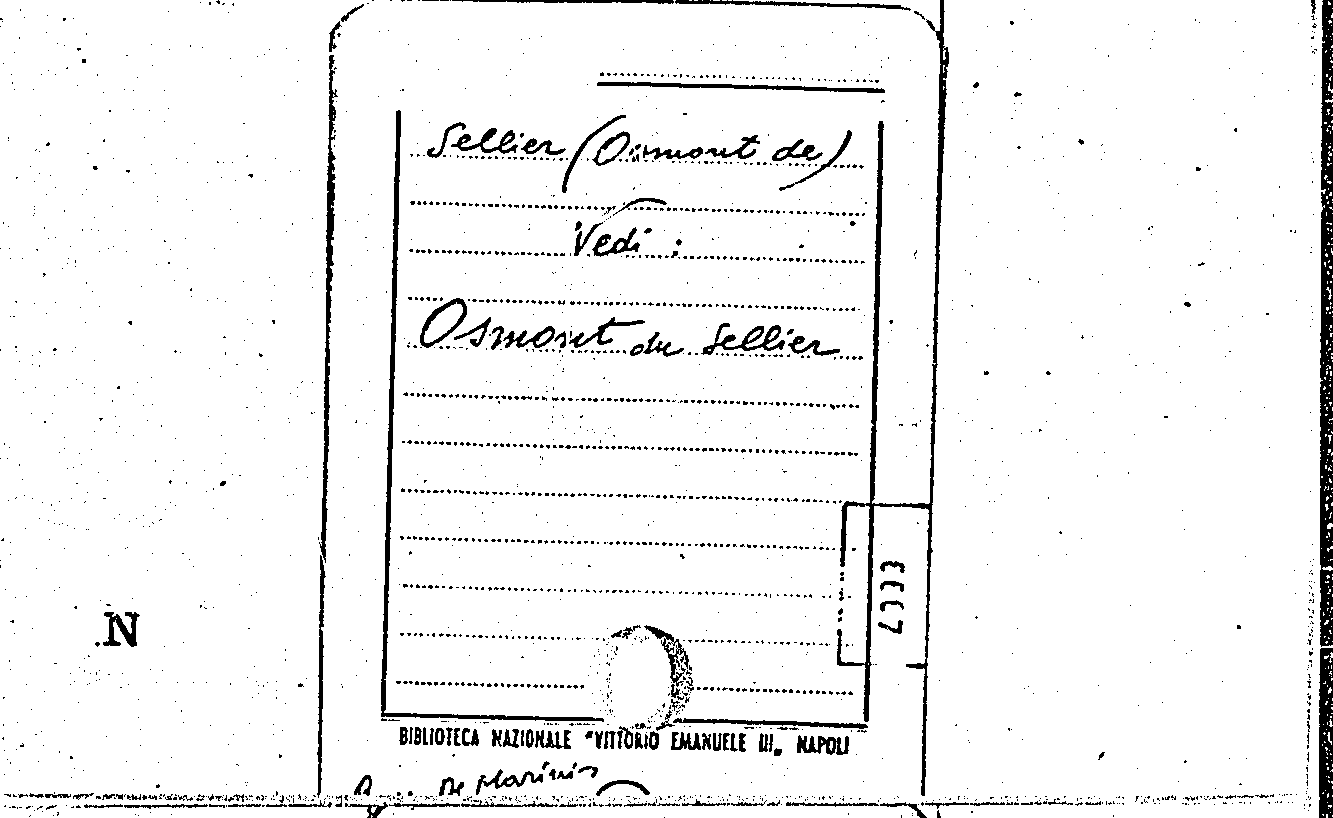 Sellier (Osmont de)
Vedi :
Osmont du Sellier
N
BIBLIOTECA NAZIONALE "VITTORIO EMANUELE III„ NAPOLI
De Marinis